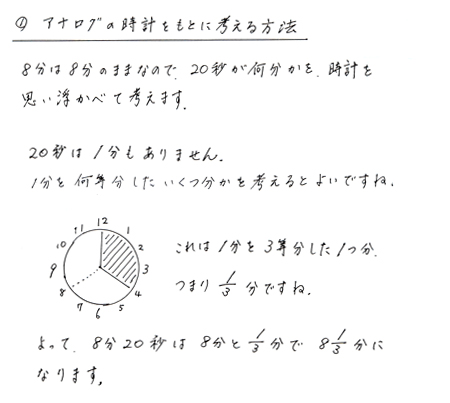 ① アナログの時計をもとに考える方法
8分は8分のままなので、20秒が何分かを、時計を
思い浮かべて考えます。
20秒は1分もありません。
1分を何等分したいくつ分かを考えるとよいですね。
12
11 1
10 2
9 3
8 4
7 5
6
これは1分を3等分した1つ分。
つまり 1/3 分ですね。
よって、8分20秒は8分と 1/3 分で 8 1/3 分に
なります。